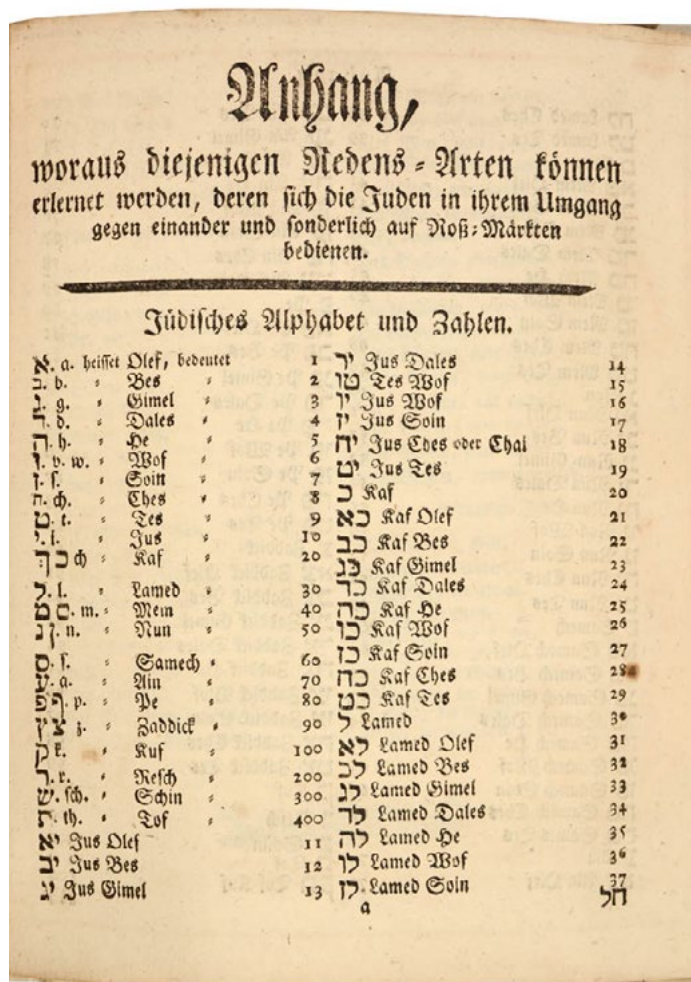 Anhang,
woraus diejenigen Redens-Arten können
erlernet werden, deren sich die Juden in ihrem Umgang
gegen einander und sonderlich auf Roß-Märkten
bedienen.
Jüdisches Alphabet und Zahlen.
א. a. heisset Olef, bedeutet 1
ב. b. = Bes = 2
ג. g. = Gimel = 3
ד. d. = Dales = 4
ה. h. = He = 5
ו. v. w. = Wof = 6
ז. s. = Soin = 7
ח. ch. = Ches = 8
ט. t. = Tes = 9
י. i. = Jus = 10
ך כ ch = Kaf = 20
ל. l. = Lamed = 30
ם מ. m. = Mem = 40
נ ן. n. = Nun = 50
ס. s. = Samech = 60
ע. a. = Ain = 70
פ ף. p. = Pe = 80
צ ץ z. = Zaddick = 90
ק k. = Kuf = 100
ר. r. = Resch = 200
ש. sch. = Schin = 300
ת. th. = Tof = 400
יא Jus Olef 11
יב Jus Bes 12
יג Jus Gimel 13
יד Jus Dales 14
טו Tes Wof 15
יו Jus Wof 16
יז Jus Soin 17
יח Jus Ches oder Chai 18
יט Jus Tes 19
כ Kaf 20
כא Kaf Olef 21
כב Kaf Bes 22
כג Kaf Gimel 23
כד Kaf Dales 24
כה Kaf He 25
כו Kaf Wof 26
כז Kaf Soin 27
כח Kaf Ches 28
כט Kaf Tes 29
ל Lamed 30
לא Lamed Olef 31
לב Lamed Bes 32
לג Lamed Gimel 33
לד Lamed Dales 34
לה Lamed He 35
לו Lamed Wof 36
לז Lamed Soin 37
a
חל